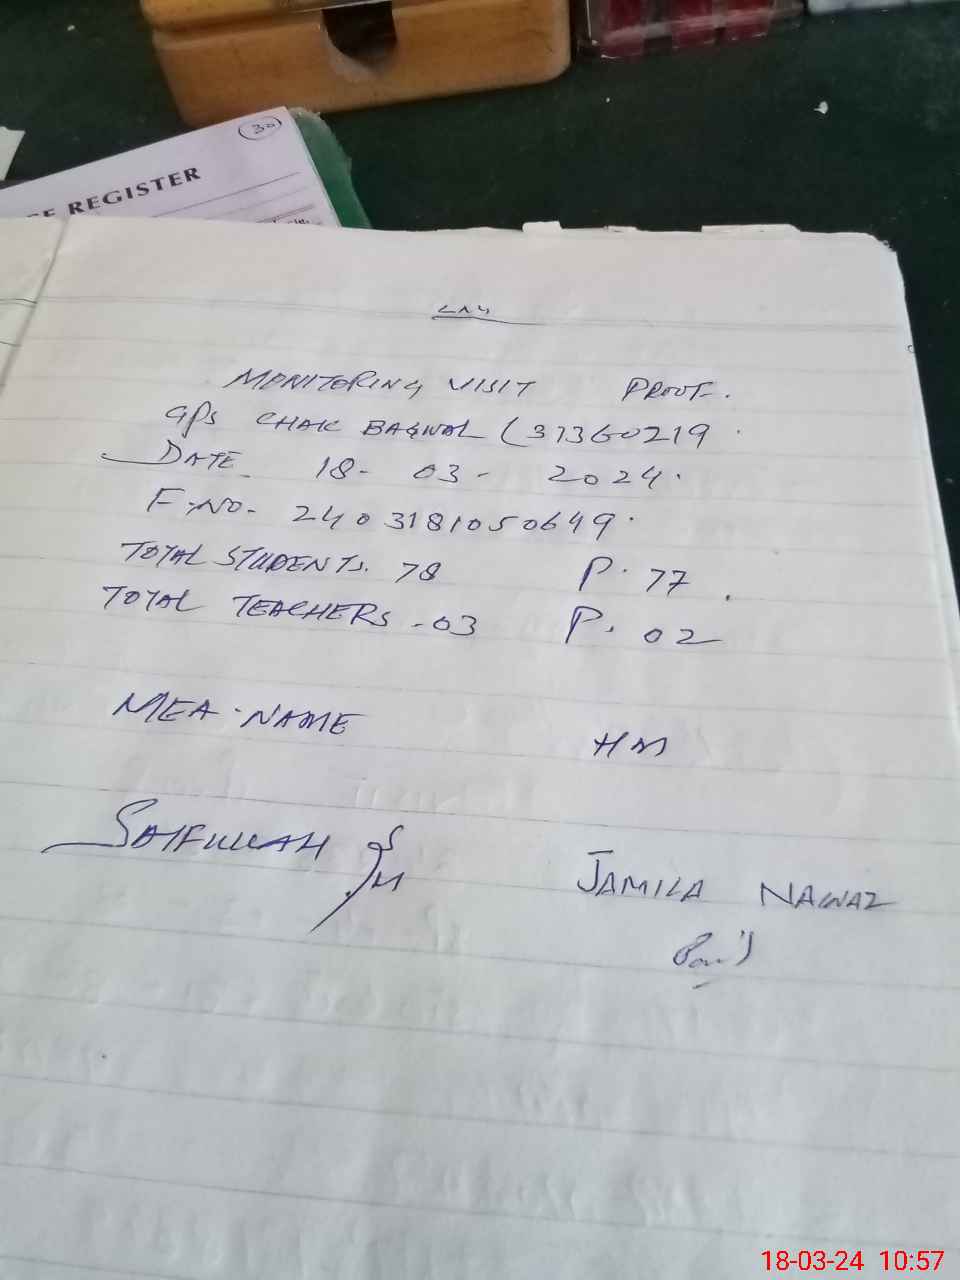 30
REGISTER
MONITORING VISIT PROOF.
GPS CHAK BAGWAL (37360219
DATE 18-03-2024.
F.NO- 2403181050649.
TOTAL STUDENTS. 78 P. 77.
TOTAL TEACHERS -03 P. 02
MEA-NAME HM
SAIFULLAH
JAMILA NAWAZ
18-03-24 10:57